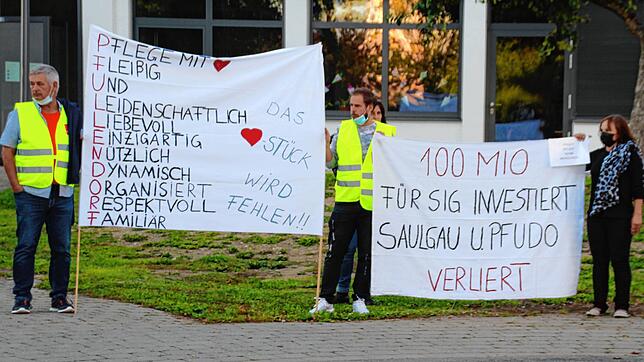 PFLEGE MIT
FLEIßIG
UND
LEIDENSCHAFTLICH
LIEBEVOLL
EINZIGARTIG
NÜTZLICH
DYNAMISCH
ORGANISIERT
RESPEKTVOLL
FAMILIÄR
DAS
STÜCK
WIRD
FEHLEN!!
100 MIO
FÜR SIG INVESTIERT
SAULGAU U. PFUDO
VERLIERT